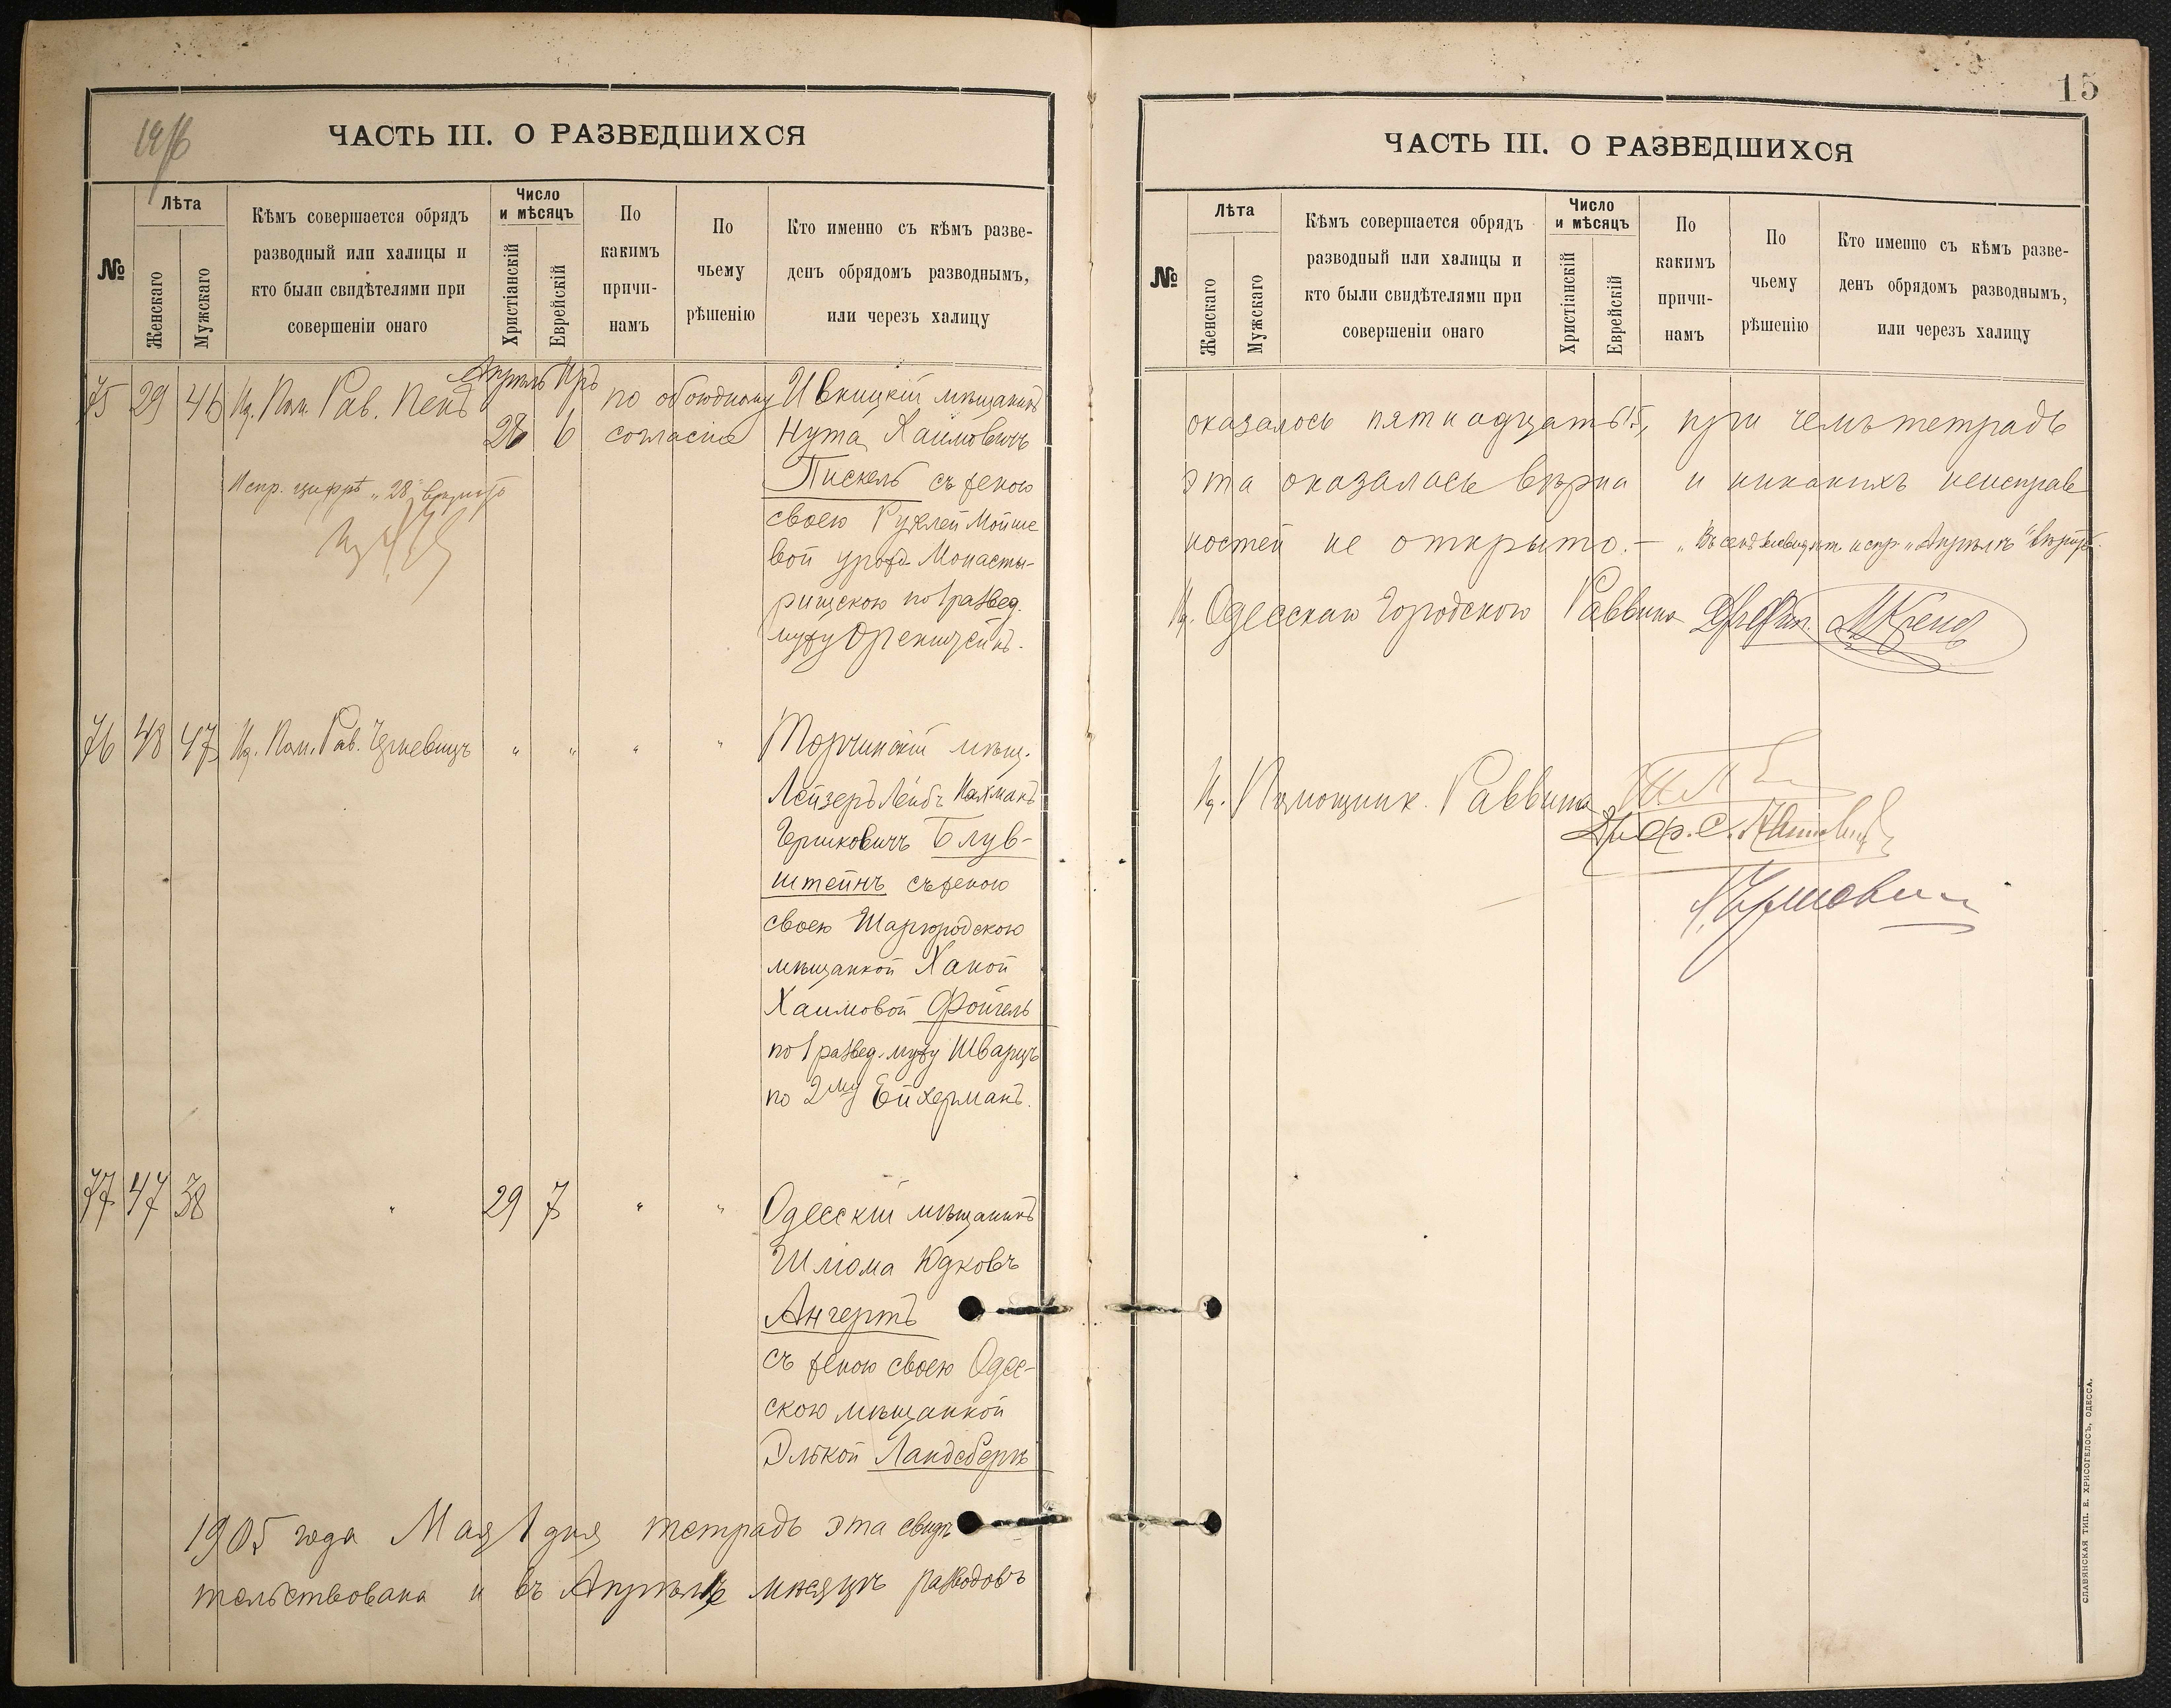 ЧАСТЬ III. О РАЗВЕДШИХСЯ
№
Лѣта
Женскаго
Мужскаго
Кѣмъ совершается обрядъ
разводный или халицы и
кто были свидѣтелями при
совершеніи онаго
Число
и мѣсяцъ
Христіанскій
Еврейскій
По
какимъ
причи-
намъ
По
чьему
рѣшенію
Кто именно съ кѣмъ разве-
денъ обрядомъ разводнымъ,
или черезъ халицу
Апрѣль Иръ
75 29 46 Из. Пом. Рав. 28 6 по обоюдному согласію
Испр. цифрѣ „28" вѣрить
Ивницкій мѣщанинъ
Нута Хаимовичъ
Пискель съ женою
своею Рухлей Мойше
вой урожд. Монасты-
рищскою по 1 развед.
мужу Оренштейнъ.
76 48 47 Из. Пом. Рав. " " " "
Торчинскій мѣщ.
Лейзеръ Лейбъ Нахманъ
Гершковичъ Блув-
штейнъ съ женою
своею Шаргородскою
мѣщанкой Ханой
Хаимовой Фойгель
по 1 развед. мужу Шварцъ
по 2му Ейхерманъ.
77 47 38 " 29 7 " "
Одесскій мѣщанинъ
Шлома Юдковъ
Ангертъ
съ женою своею Одес-
скою мѣщанкой
Элькой Ландсбергъ
1905 года Мая 1 дня тетрадь эта свидѣ
тельствована и въ Апрѣлѣ мѣсяцѣ разводовъ
15
ЧАСТЬ III. О РАЗВЕДШИХСЯ
№
Лѣта
Женскаго
Мужскаго
Кѣмъ совершается обрядъ
разводный или халицы и
кто были свидѣтелями при
совершеніи онаго
Число
и мѣсяцъ
Христіанскій
Еврейскій
По
какимъ
причи-
намъ
По
чьему
рѣшенію
Кто именно съ кѣмъ разве-
денъ обрядомъ разводнымъ,
или черезъ халицу
оказалось пятнадцать 15, при чемъ тетрадь
эта оказалась вѣрна и никакихъ неисправ
ностей не открыто. — испр. „Апрѣлѣ" вѣрить
И. Одесскаго Городского Раввина
И. Помощник. Раввина
СЛАВЯНСКАЯ ТИП. Е. ХРИСОГЕЛОСЪ, ОДЕССА.